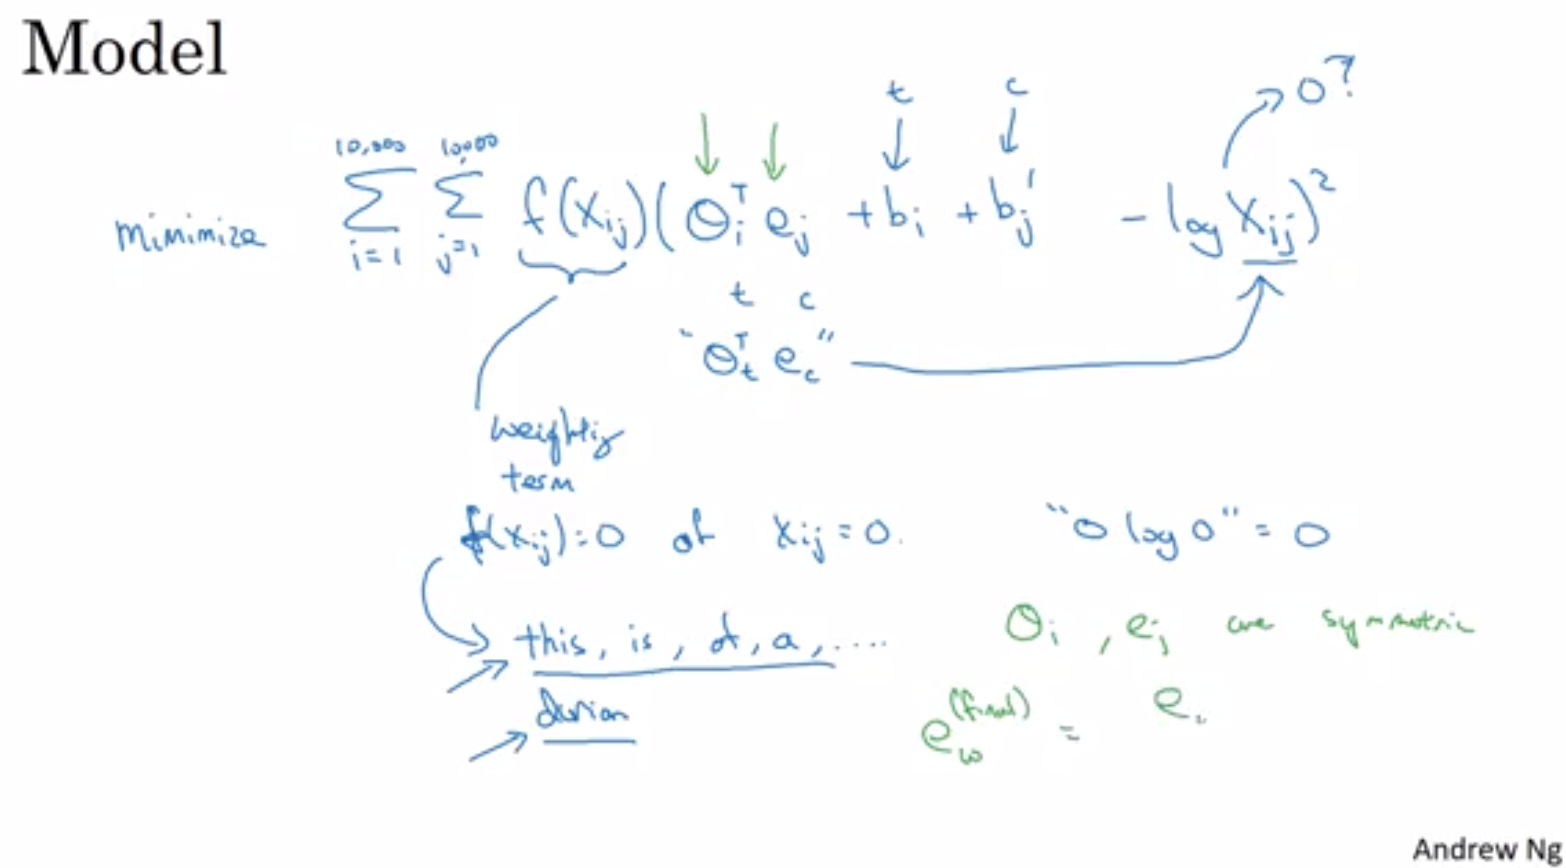 Model
t c 0?
minimize Σ_{i=1}^{10,000} Σ_{j=1}^{10,000} f(X_{ij}) (θ_i^T e_j + b_i + b_j' - log X_{ij})^2
t c
"θ_t^T e_c"
weighting
term
f(x_{ij}) = 0 if x_{ij} = 0. "0 log 0" = 0
this, is, of, a, .... θ_i, e_j are symmetric
durian e_w^{(final)} = e
Andrew Ng